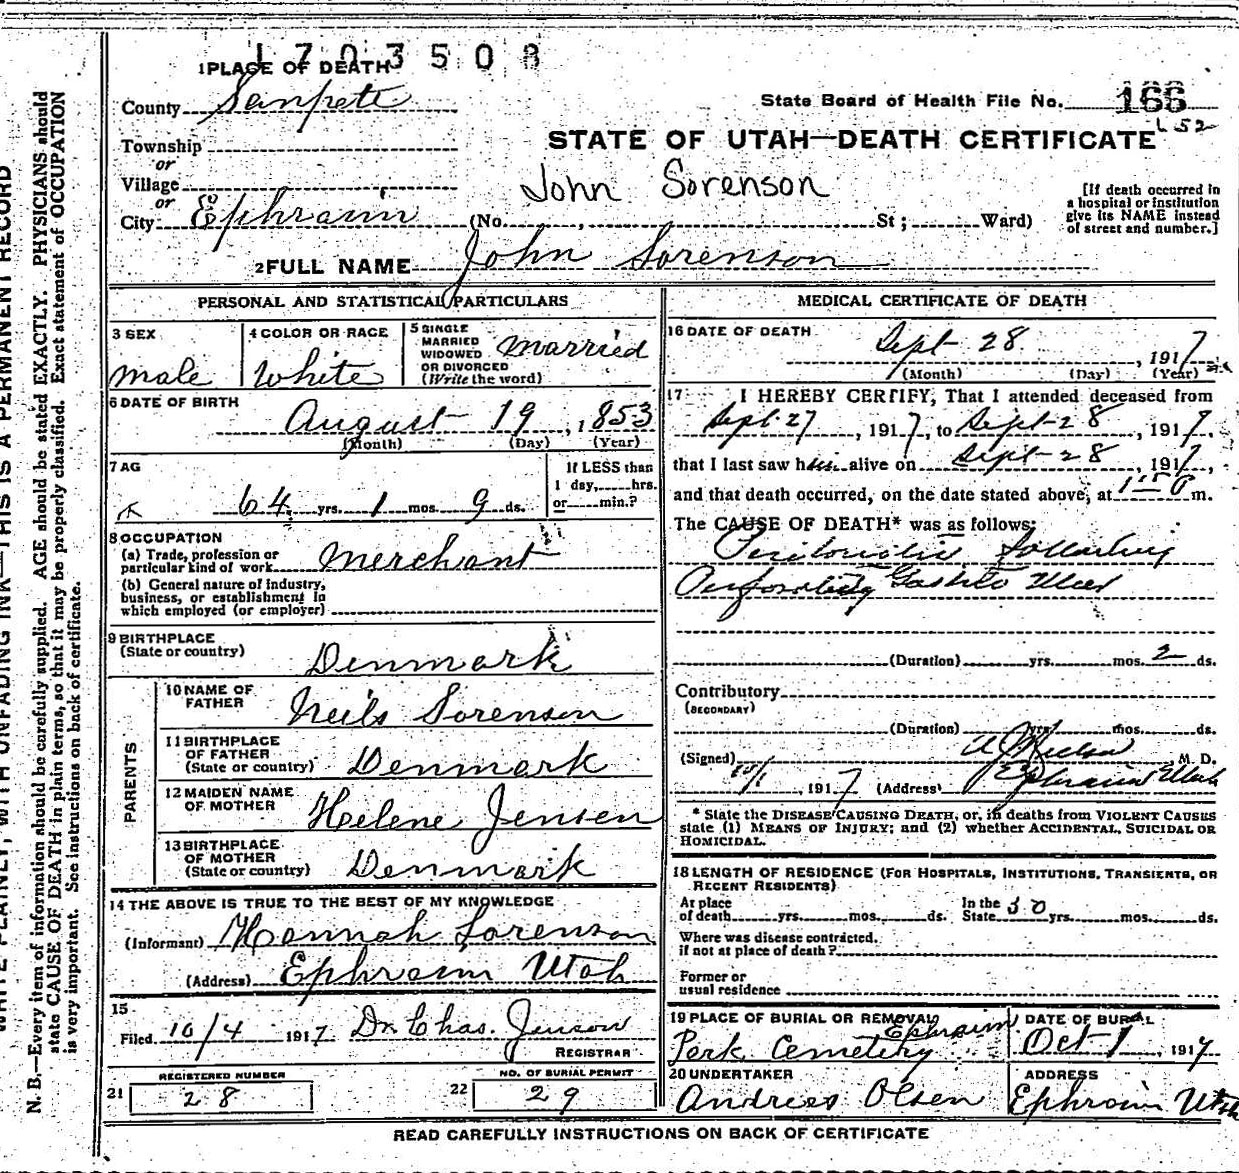 1703508
1 PLACE OF DEATH
County Sanpete
State Board of Health File No. 166
652
STATE OF UTAH—DEATH CERTIFICATE
Township
or
Village
or
John Sorenson
[If death occurred in
a hospital or institution
give its NAME instead
of street and number.]
City Ephraim (No. , St ; Ward)
2 FULL NAME John Sorenson
PERSONAL AND STATISTICAL PARTICULARS
3 SEX
male
4 COLOR OR RACE
White
5 SINGLE
MARRIED
WIDOWED
OR DIVORCED
(Write the word)
married
6 DATE OF BIRTH
August 19, 1853
(Month) (Day) (Year)
7 AG
64 yrs. 1 mos. 9 ds.
If LESS than
1 day, hrs.
or min.?
8 OCCUPATION
(a) Trade, profession or
particular kind of work Merchant
(b) General nature of industry,
business, or establishment in
which employed (or employer)
9 BIRTHPLACE
(State or country)
Denmark
PARENTS
10 NAME OF
FATHER
Neils Sorenson
11 BIRTHPLACE
OF FATHER
(State or country) Denmark
12 MAIDEN NAME
OF MOTHER Helene Jensen
13 BIRTHPLACE
OF MOTHER
(State or country) Denmark
14 THE ABOVE IS TRUE TO THE BEST OF MY KNOWLEDGE
(Informant) Hannah Sorenson
(Address) Ephraim Utah
15
Filed 10/4 1917 Dr. Chas. Jenson
REGISTRAR
REGISTERED NUMBER
21 28
NO. OF BURIAL PERMIT
22 29
MEDICAL CERTIFICATE OF DEATH
16 DATE OF DEATH
Sept 28, 1917
(Month) (Day) (Year)
17 I HEREBY CERTIFY, That I attended deceased from
Sept 27, 1917, to Sept 28, 1917,
that I last saw him alive on Sept 28, 1917,
and that death occurred, on the date stated above, at m.
The CAUSE OF DEATH* was as follows:
Peritonitis following
Perforating Gastric Ulcer
(Duration) yrs. mos. 2 ds.
Contributory
(SECONDARY)
(Duration) yrs. mos. ds.
(Signed) M. D.
10/1, 1917 (Address) Ephraim Utah
* State the DISEASE CAUSING DEATH, or, in deaths from VIOLENT CAUSES
state (1) MEANS OF INJURY; and (2) whether ACCIDENTAL, SUICIDAL OR
HOMICIDAL.
18 LENGTH OF RESIDENCE (FOR HOSPITALS, INSTITUTIONS, TRANSIENTS, OR
RECENT RESIDENTS)
At place
of death yrs. mos. ds.
In the
State 50 yrs. mos. ds.
Where was disease contracted,
if not at place of death?
Former or
usual residence
19 PLACE OF BURIAL OR REMOVAL
Ephraim
Park Cemetery
DATE OF BURIAL
Oct 1, 1917
20 UNDERTAKER
Andreas Olsen
ADDRESS
Ephraim Utah
READ CAREFULLY INSTRUCTIONS ON BACK OF CERTIFICATE
WRITE PLAINLY, WITH UNFADING INK—THIS IS A PERMANENT RECORD
N. B.—Every item of information should be carefully supplied. AGE should be stated EXACTLY. PHYSICIANS should
state CAUSE OF DEATH in plain terms, so that it may be properly classified. Exact statement of OCCUPATION
is very important. See instructions on back of certificate.